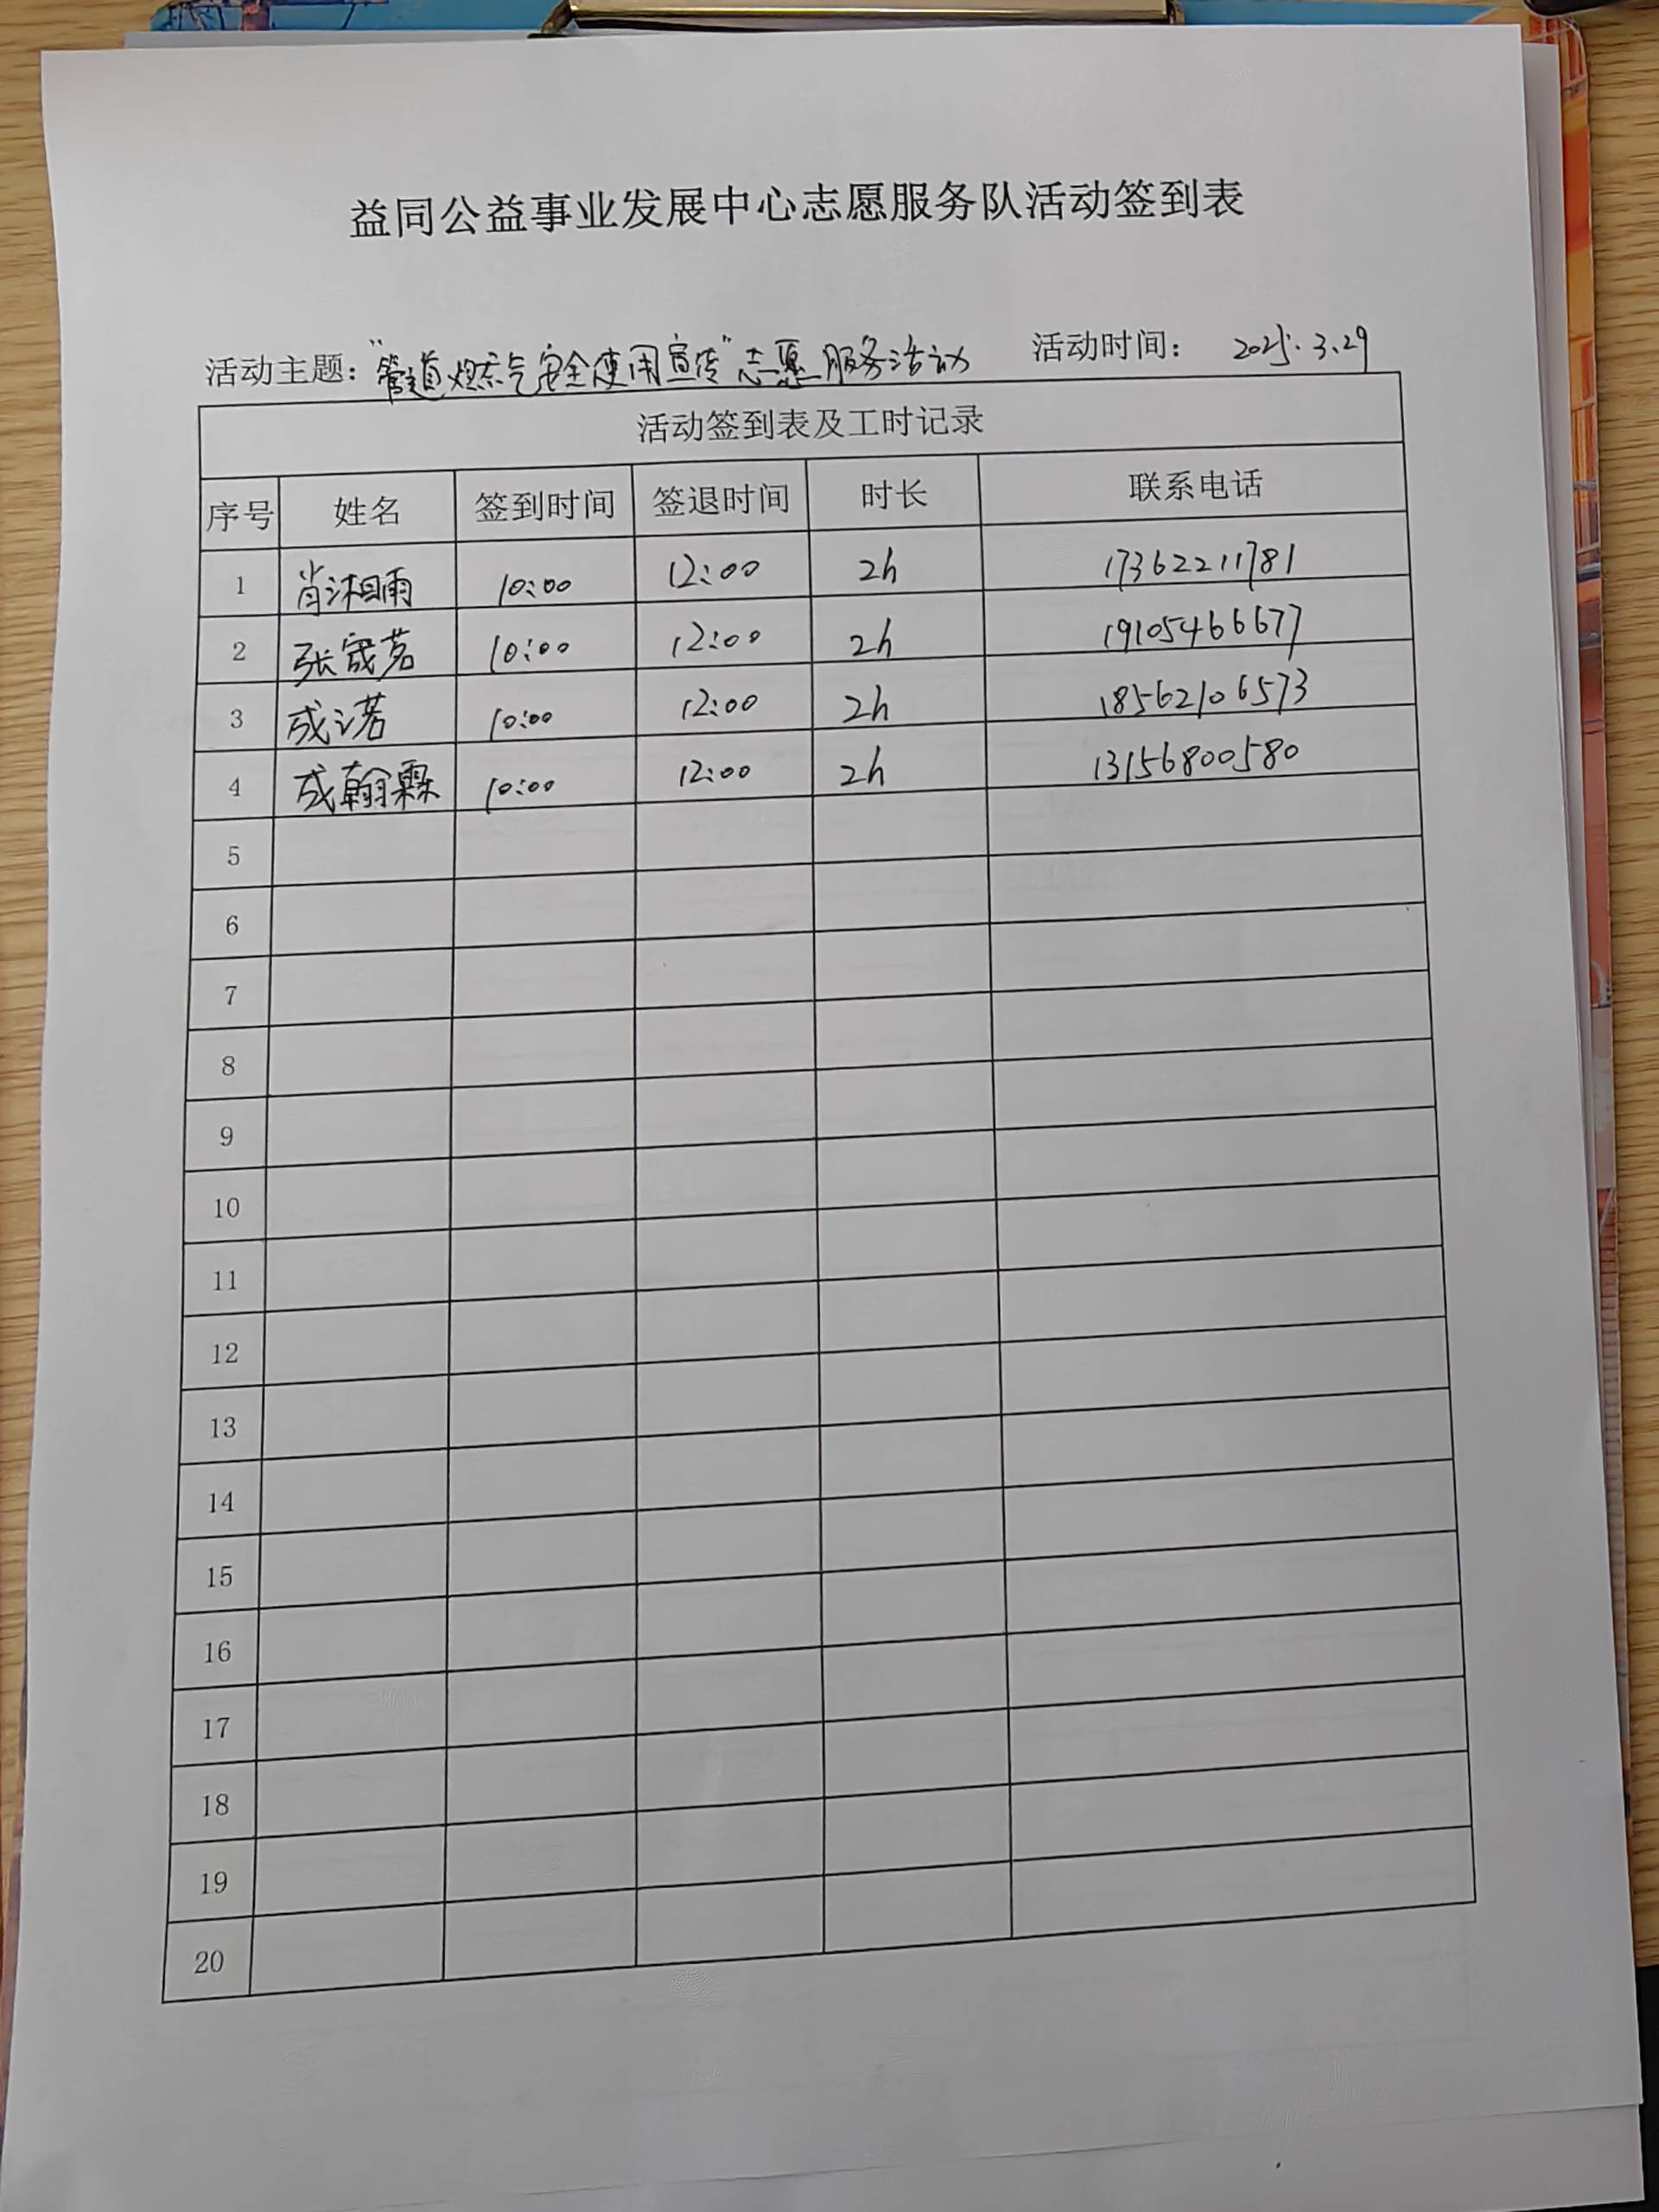 益同公益事业发展中心志愿服务队活动签到表
活动主题：“管道燃气安全使用宣传”志愿服务活动 活动时间： 2025.3.29
活动签到表及工时记录
序号 姓名 签到时间 签退时间 时长 联系电话
1 肖湘雨 10:00 12:00 2h 17362211781
2 张宬茗 10:00 12:00 2h 19105466677
3 成诺 10:00 12:00 2h 18562106573
4 成翰霖 10:00 12:00 2h 13156800580
5
6
7
8
9
10
11
12
13
14
15
16
17
18
19
20